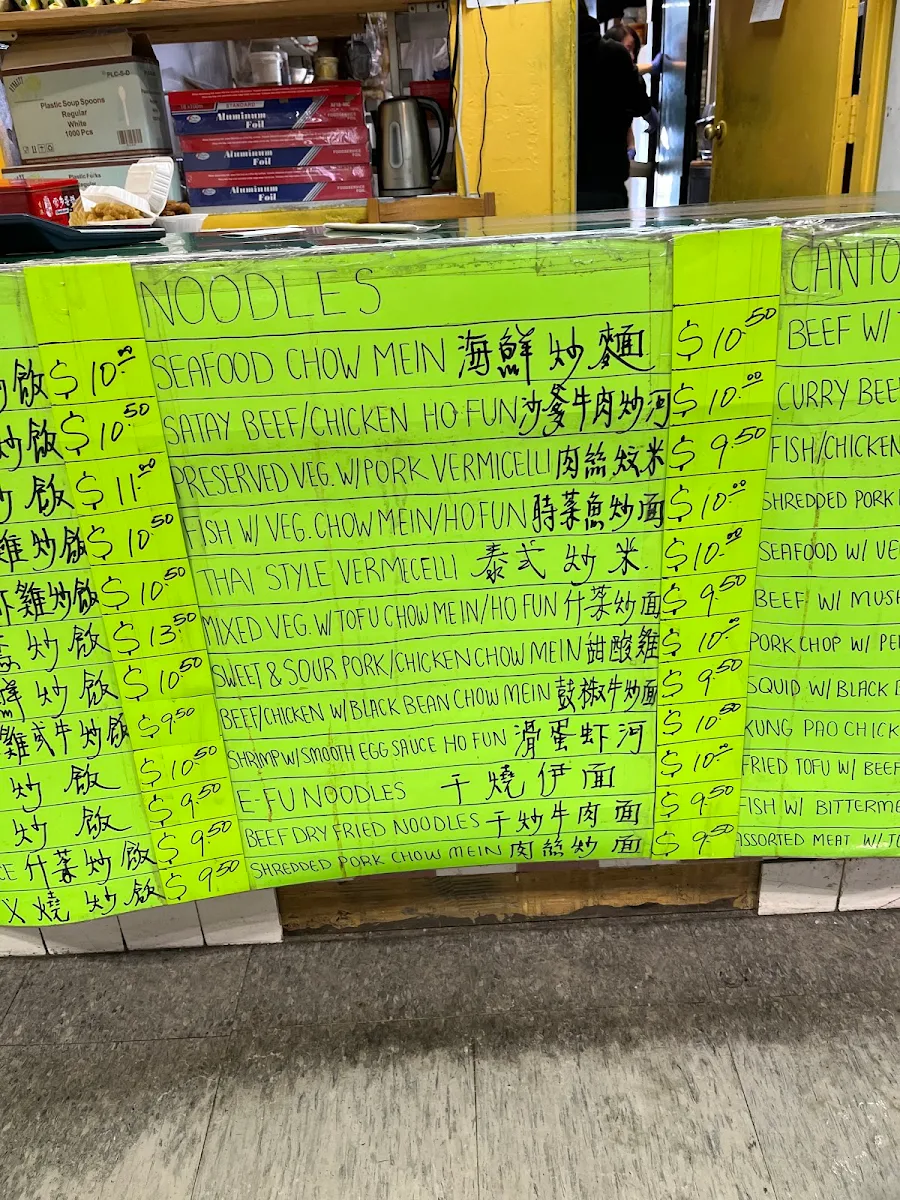 PLC-S-D
Plastic Soup Spoons
Regular
White
1000 Pcs
Plastic Forks
STANDARD
Aluminum
Foil
Aluminum
Foil
Aluminum
Foil
炒飯 $10.00
炒飯 $10.50
炒飯 $11.00
雞炒飯 $10.50
雞炒飯 $10.50
炒飯 $13.50
鮮炒飯 $10.50
雞或牛炒飯 $9.50
炒飯 $10.50
炒飯 $9.50
什菜炒飯 $9.50
X燒炒飯 $9.50
NOODLES
SEAFOOD CHOW MEIN 海鮮炒麵 $10.50
SATAY BEEF/CHICKEN HO FUN 沙爹牛肉炒河 $10.00
PRESERVED VEG. W/PORK VERMICELLI 肉絲炆米 $9.50
FISH W/ VEG. CHOW MEIN/HO FUN 時菜魚炒面 $10.00
THAI STYLE VERMECELLI 泰式炒米 $10.00
MIXED VEG. W/TOFU CHOW MEIN/HO FUN 什菜炒面 $9.50
SWEET & SOUR PORK/CHICKEN CHOW MEIN 甜酸雞 $10.00
BEEF/CHICKEN W/BLACK BEAN CHOW MEIN 鼓椒牛炒面 $9.50
SHRIMP W/SMOOTH EGG SAUCE HO FUN 滑蛋虾河 $10.50
E-FU NOODLES 干燒伊面 $10.00
BEEF DRY FRIED NOODLES 干炒牛肉面 $9.50
SHREDDED PORK CHOW MEIN 肉絲炒面 $9.50
CANTO
BEEF W/
CURRY BEE
FISH/CHICKEN
SHREDDED PORK
SEAFOOD W/ VE
BEEF W/ MUSH
PORK CHOP W/ PE
SQUID W/ BLACK B
KUNG PAO CHICK
FRIED TOFU W/ BEEF
FISH W/ BITTERME
ASSORTED MEAT W/ TO